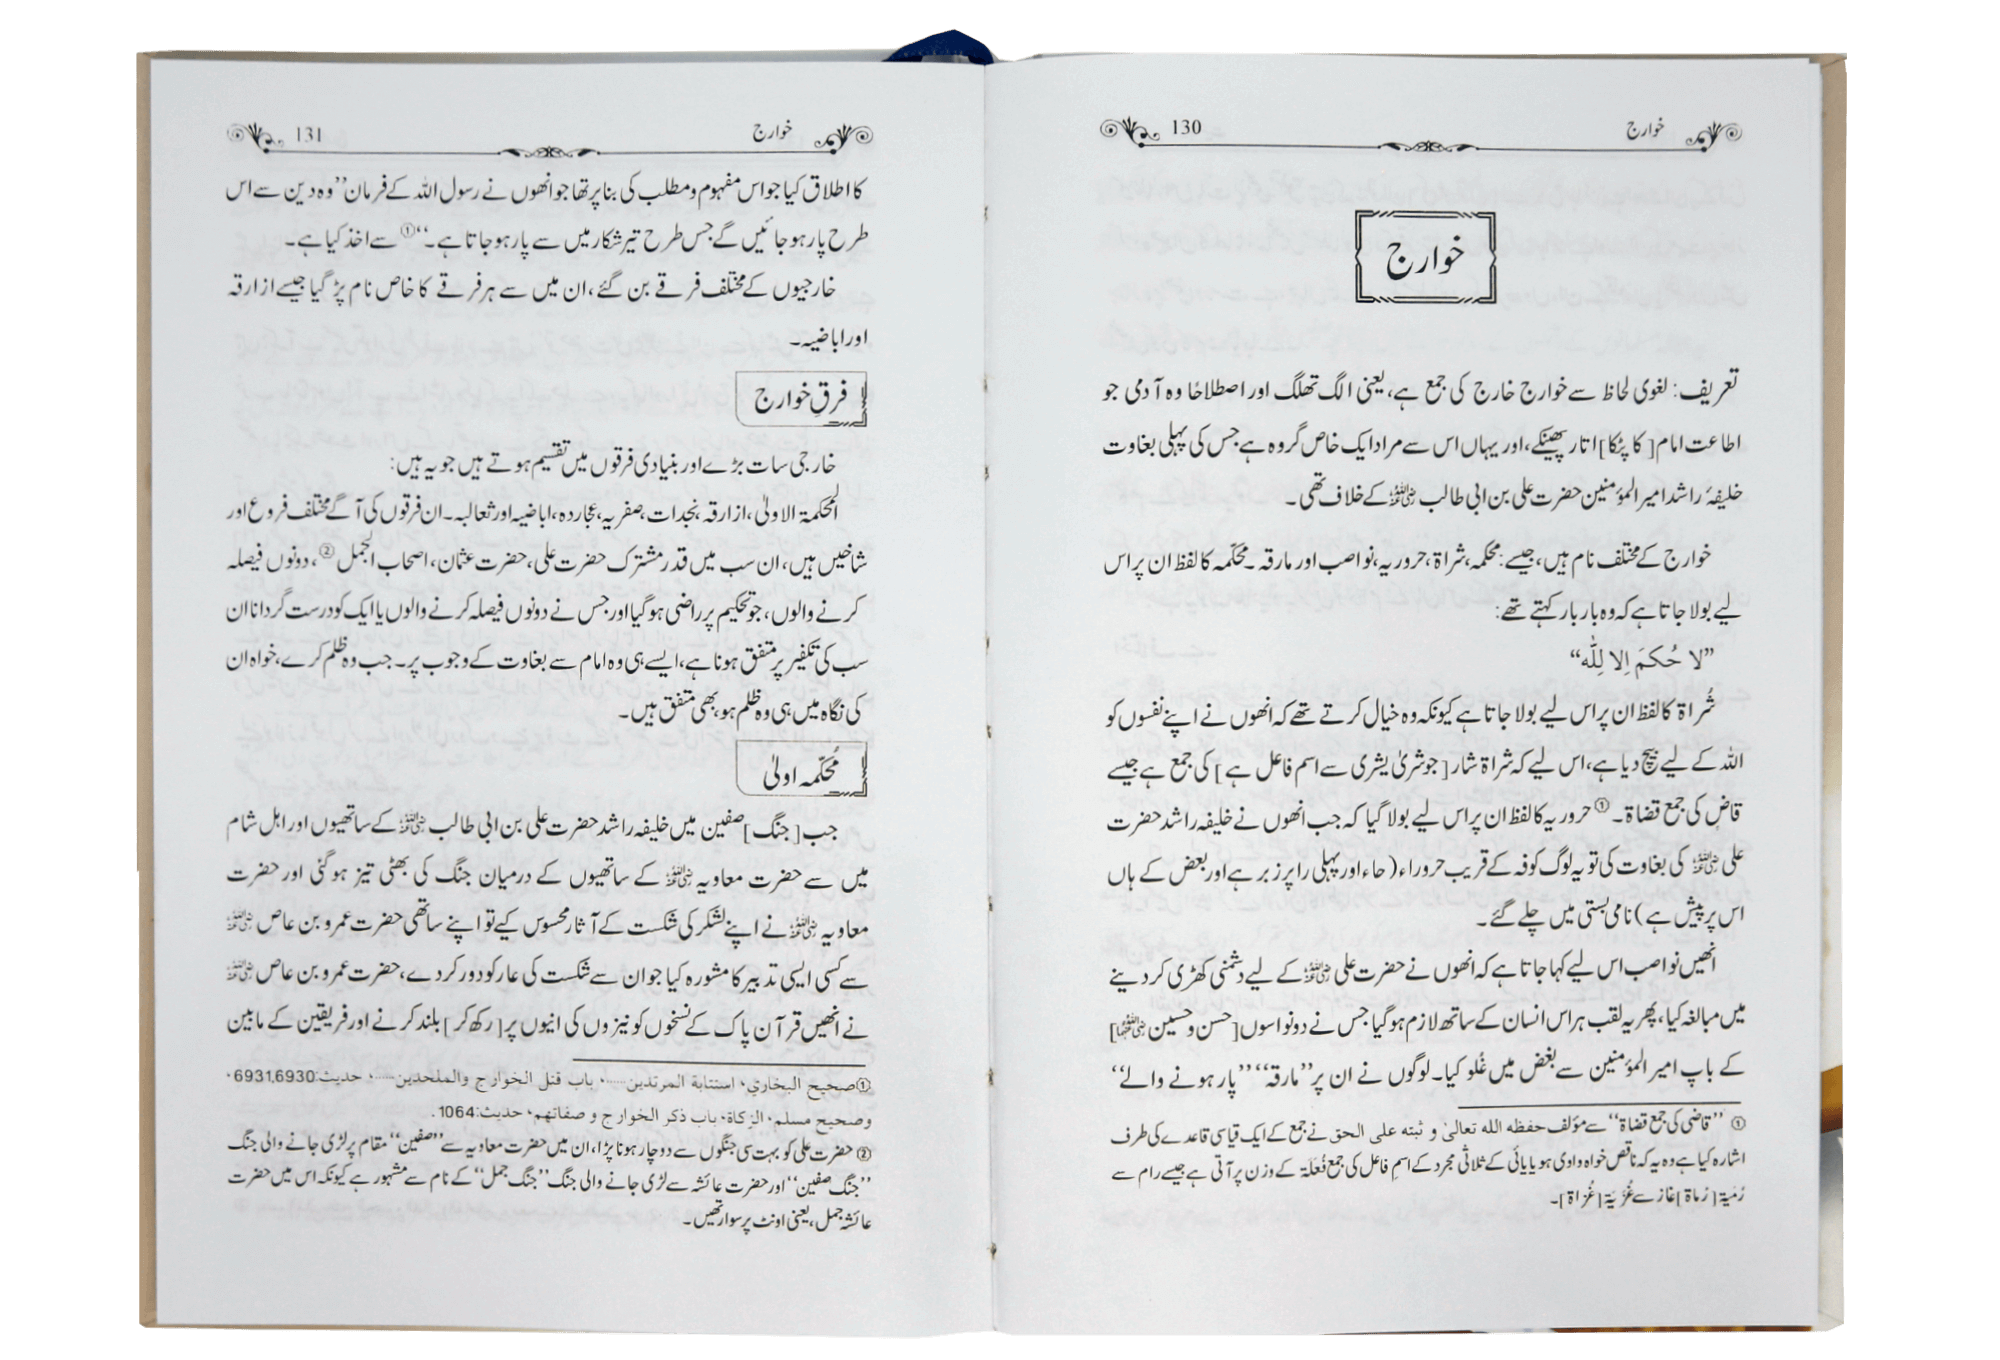 خوارج 130
خوارج
تعریف: لغوی لحاظ سے خوارج خارج کی جمع ہے، یعنی الگ تھلگ اور اصطلاحًا وہ آدمی جو
اطاعت امام [کا پٹکا] اتار پھینکے، اور یہاں اس سے مراد ایک خاص گروہ ہے جس کی پہلی بغاوت
خلیفۂ راشد امیر المؤمنین حضرت علی بن ابی طالب رضی اللہ عنہ کے خلاف تھی۔
خوارج کے مختلف نام ہیں، جیسے: محکمہ، شراۃ، حروریہ، نواصب اور مارقہ۔ محکّمہ کا لفظ ان پر اس
لیے بولا جاتا ہے کہ وہ بار بار کہتے تھے:
”لا حُکمَ اِلا لِلّٰہ“
شُراۃ کا لفظ ان پر اس لیے بولا جاتا ہے کیونکہ وہ خیال کرتے تھے کہ انھوں نے اپنے نفسوں کو
اللہ کے لیے بیچ دیا ہے، اس لیے کہ شراۃ شار [جو شریٰ یشری سے اسم فاعل ہے] کی جمع ہے جیسے
قاضٍ کی جمع قضاۃ۔① حروریہ کا لفظ ان پر اس لیے بولا گیا کہ جب انھوں نے خلیفہ راشد حضرت
علی رضی اللہ عنہ کی بغاوت کی تو یہ لوگ کوفہ کے قریب حروراء (حاء اور پہلی را پر زبر ہے اور بعض کے ہاں
اس پر پیش ہے) نامی بستی میں چلے گئے۔
انھیں نواصب اس لیے کہا جاتا ہے کہ انھوں نے حضرت علی رضی اللہ عنہ کے لیے دشمنی کھڑی کر دینے
میں مبالغہ کیا، پھر یہ لقب ہر اس انسان کے ساتھ لازم ہو گیا جس نے دو نواسوں [حسن و حسین رضی اللہ عنہما]
کے باپ امیر المؤمنین سے بغض میں غُلو کیا۔ لوگوں نے ان پر ”مارقہ“ ”پار ہونے والے“
① ”قاضی کی جمع قضاۃ“ سے مؤلف حفظه الله تعالیٰ و ثبته علی الحق نے جمع کے ایک قیاسی قاعدے کی طرف
اشارہ کیا ہے وہ یہ کہ ناقص خواہ واوی ہو یا یائی کے ثلاثی مجرد کے اسمِ فاعل کی جمع فُعَلَة کے وزن پر آتی ہے جیسے رام سے
رُمَیَة [رُماة] غاز سے غُزَیَة [غُزاة]۔
خوارج 131
کا اطلاق کیا جو اس مفہوم و مطلب کی بنا پر تھا جو انھوں نے رسول اللہ کے فرمان ”وہ دین سے اس
طرح پار ہو جائیں گے جس طرح تیر شکار میں سے پار ہو جاتا ہے۔“① سے اخذ کیا ہے۔
خارجیوں کے مختلف فرقے بن گئے، ان میں سے ہر فرقے کا خاص نام پڑ گیا جیسے ازارقہ
اور اباضیہ۔
فرقِ خوارج
خارجی سات بڑے اور بنیادی فرقوں میں تقسیم ہوتے ہیں جو یہ ہیں:
المحکمۃ الاولیٰ، ازارقہ، نجدات، صفریہ، عجاردہ، اباضیہ اور ثعالبہ۔ ان فرقوں کی آگے مختلف فروع اور
شاخیں ہیں، ان سب میں قدر مشترک حضرت علی، حضرت عثمان، اصحاب الجمل②، دونوں فیصلہ
کرنے والوں، جو تحکیم پر راضی ہو گیا اور جس نے دونوں فیصلہ کرنے والوں یا ایک کو درست گردانا ان
سب کی تکفیر پر متفق ہونا ہے، ایسے ہی وہ امام سے بغاوت کے وجوب پر۔ جب وہ ظلم کرے، خواہ ان
کی نگاہ میں ہی وہ ظلم ہو، بھی متفق ہیں۔
مُحکّمہ اولیٰ
جب [جنگ] صفین میں خلیفہ راشد حضرت علی بن ابی طالب رضی اللہ عنہ کے ساتھیوں اور اہل شام
میں سے حضرت معاویہ رضی اللہ عنہ کے ساتھیوں کے درمیان جنگ کی بھٹی تیز ہو گئی اور حضرت
معاویہ رضی اللہ عنہ نے اپنے لشکر کی شکست کے آثار محسوس کیے تو اپنے ساتھی حضرت عمرو بن عاص رضی اللہ عنہ
سے کسی ایسی تدبیر کا مشورہ کیا جو ان سے شکست کی عار کو دور کر دے، حضرت عمرو بن عاص رضی اللہ عنہ
نے انھیں قرآن پاک کے نسخوں کو نیزوں کی انیوں پر [رکھ کر] بلند کرنے اور فریقین کے مابین
① صحیح البخاري، استتابة المرتدین......، باب قتل الخوارج والملحدین......، حدیث:6931,6930،
وصحیح مسلم، الزکاة، باب ذکر الخوارج و صفاتهم، حدیث:1064.
② حضرت علی کو بہت سی جنگوں سے دوچار ہونا پڑا، ان میں حضرت معاویہ سے ”صفین“ مقام پر لڑی جانے والی جنگ
”جنگ صفین“ اور حضرت عائشہ سے لڑی جانے والی جنگ ”جنگ جمل“ کے نام سے مشہور ہے کیونکہ اس میں حضرت
عائشہ جمل، یعنی اونٹ پر سوار تھیں۔